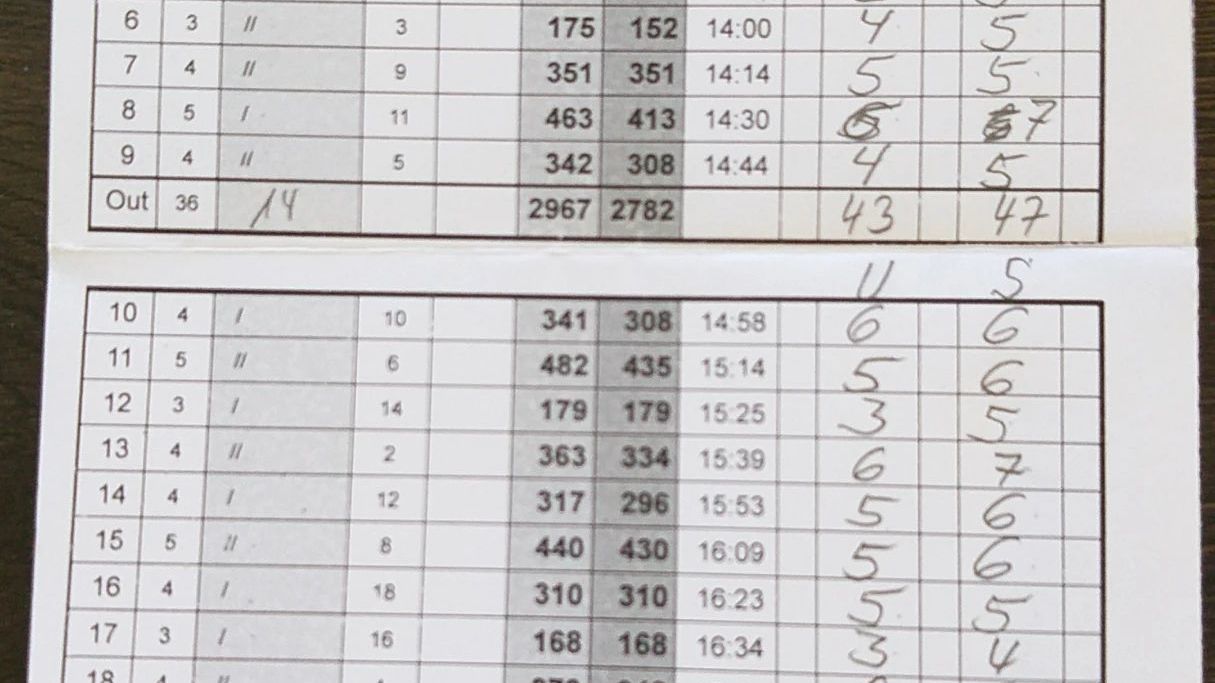 6 3 // 3 175 152 14:00 4 5
7 4 // 9 351 351 14:14 5 5
8 5 / 11 463 413 14:30 7
9 4 // 5 342 308 14:44 4 5
Out 36 14 2967 2782 43 47
11 5
10 4 / 10 341 308 14:58 6 6
11 5 // 6 482 435 15:14 5 6
12 3 / 14 179 179 15:25 3 5
13 4 // 2 363 334 15:39 6 7
14 4 / 12 317 296 15:53 5 6
15 5 // 8 440 430 16:09 5 6
16 4 / 18 310 310 16:23 5 5
17 3 / 16 168 168 16:34 3 4
18